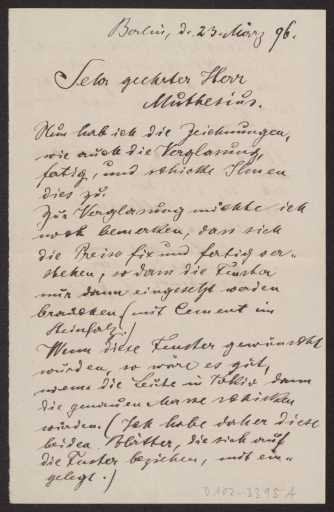 Berlin, d. 23. März 96.
Sehr geehrter Herr
Muthesius.
Nun hab ich die Zeichnungen,
wie auch die Verglasung,
fertig, und schicke Ihnen
dies zu.
Zur Verglasung möchte ich
noch bemerken, dass sich
die Preise fix und fertig ver-
stehen, so dass die Fenster
nur dann eingesetzt werden
brauchen (mit Cement im
Steinfalz.)
Wenn diese Fenster gewünscht
würden, so wäre es gut,
wenn die Leute in Tokio dann
die genauen Masse schicken
würden. (Ich habe daher diese
beiden Blätter, die sich auf
die Fenster beziehen, mit ein-
gelegt.)
D102-3395 A